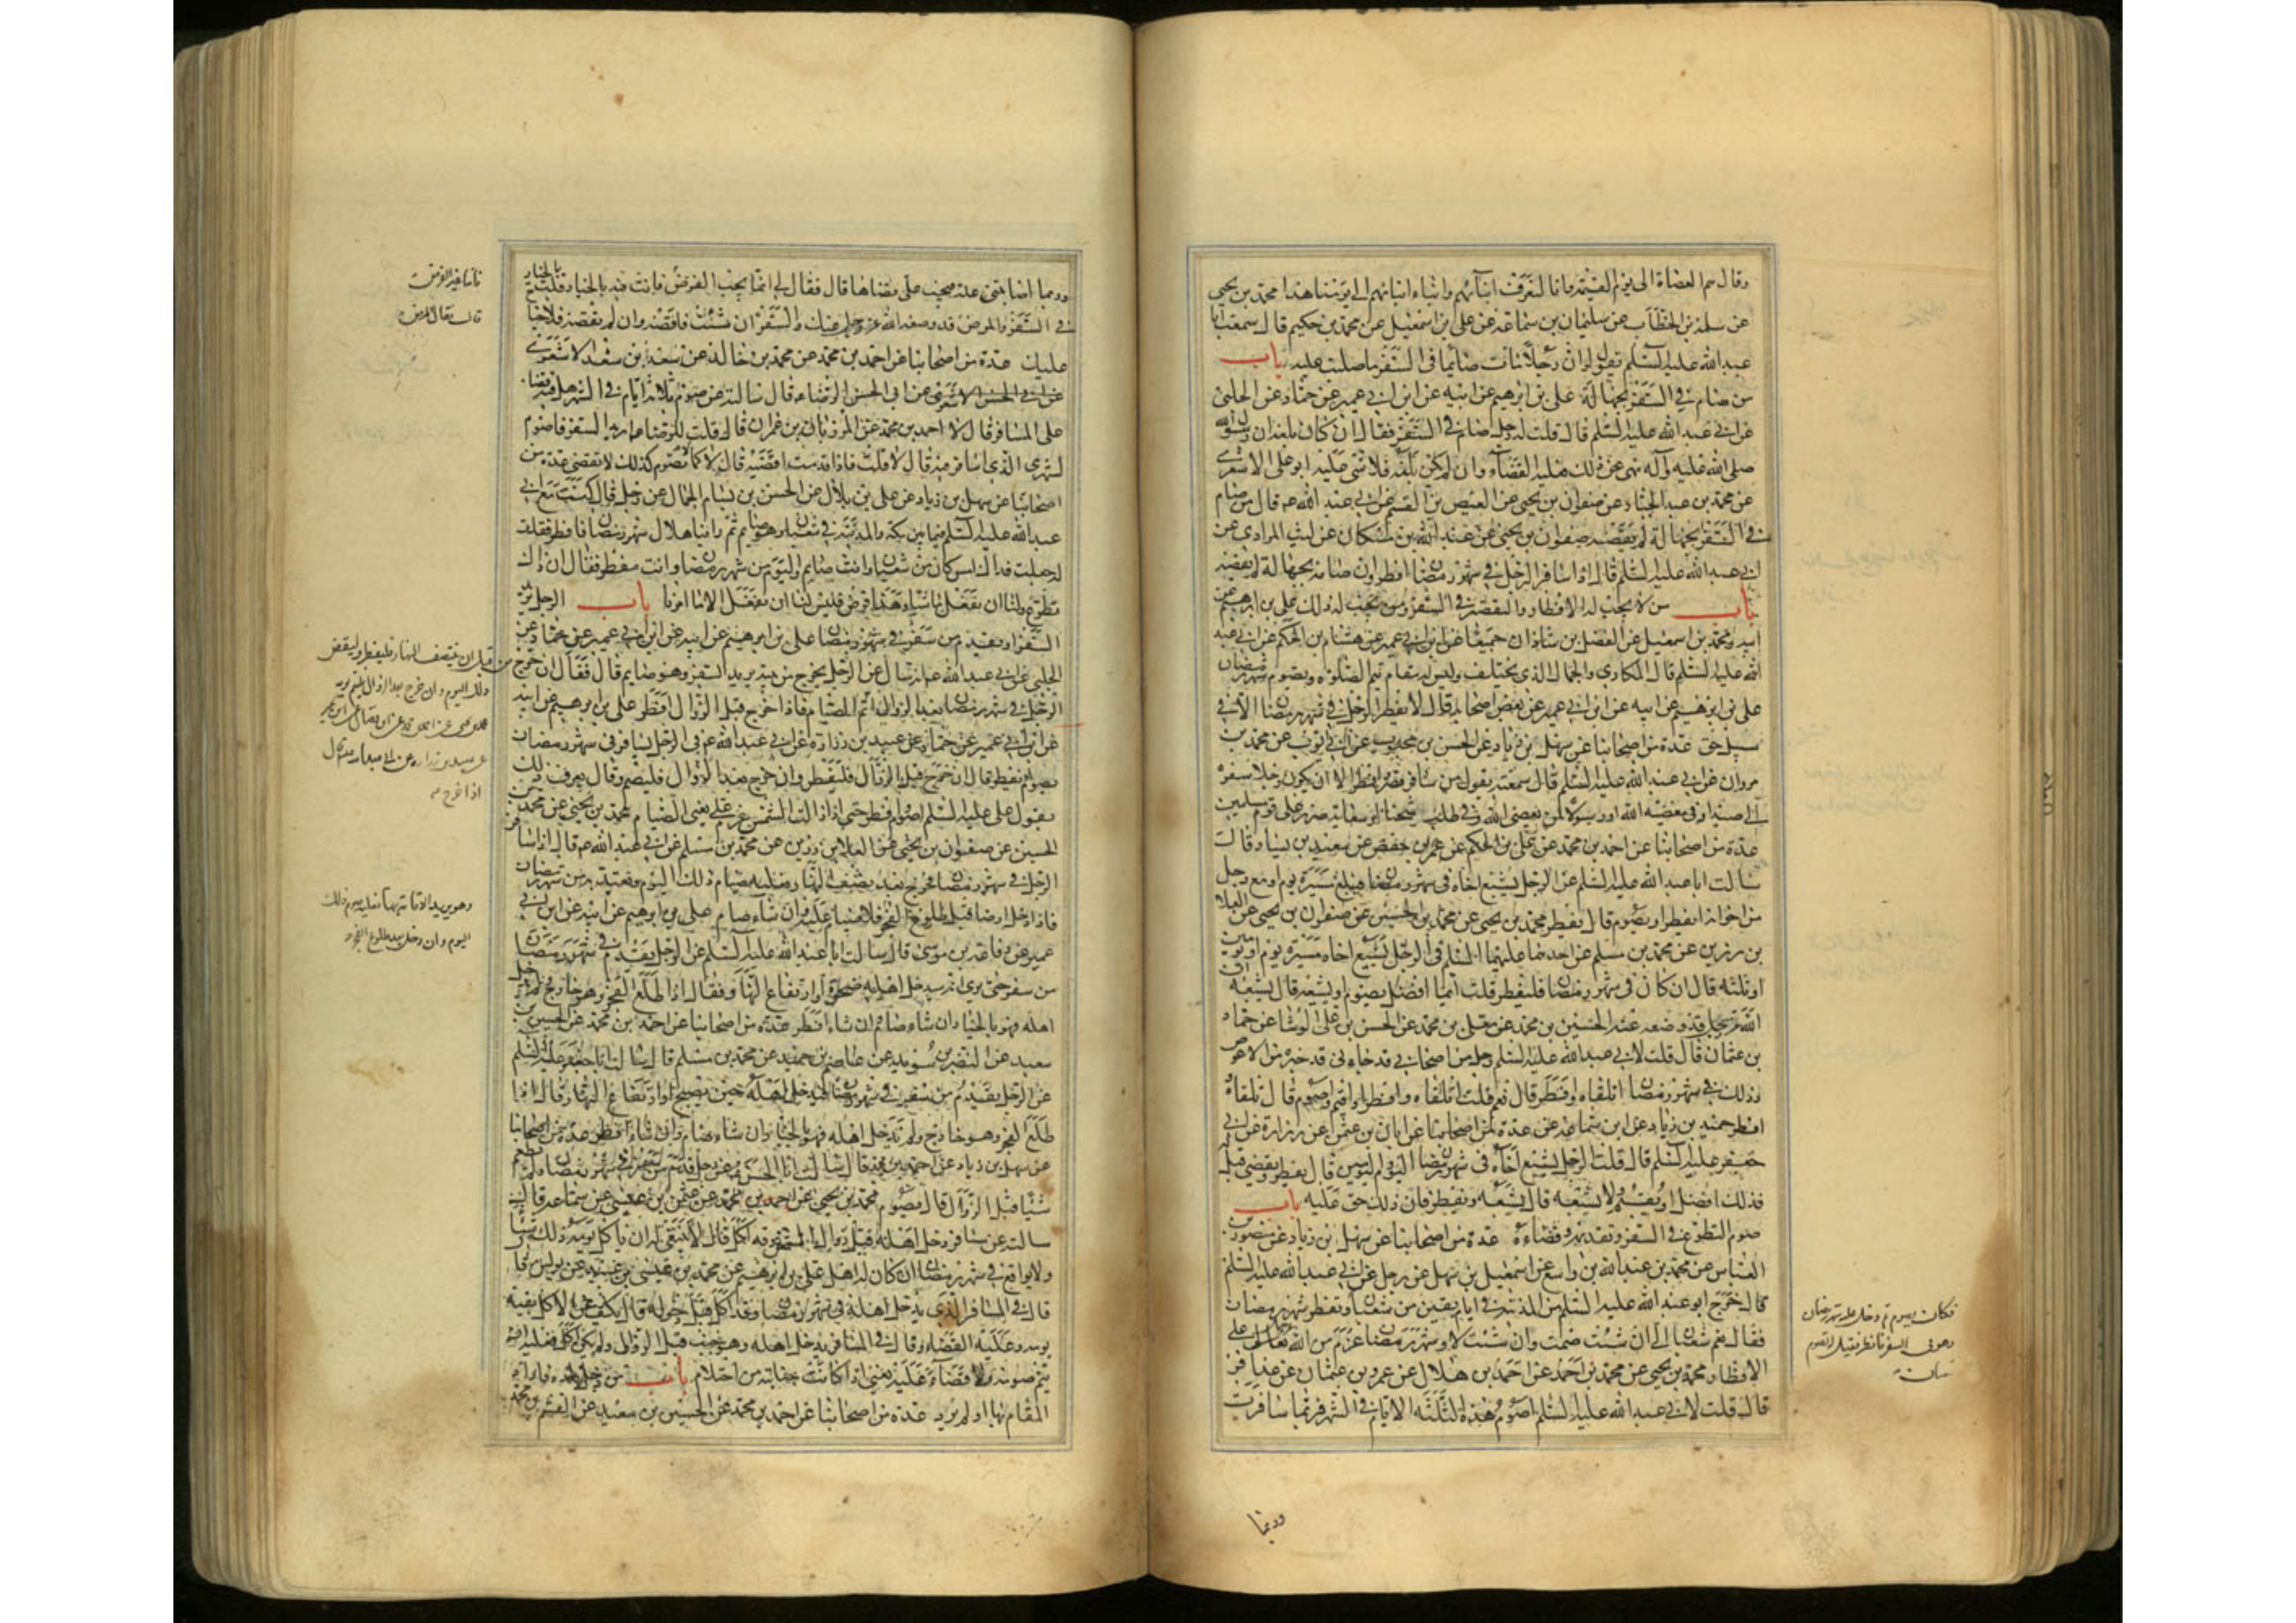 وقال هم العصاة الى يوم القيمة وانا لنعرف ابنآئهم وابناء ابنائهم الى يومنا هذا محمد بن يحيى
عن سلمة بن الخطاب عن سليمان بن سماعة عن على بن اسمعيل عن محمد بن حكيم قال سمعت ابا
عبد الله عليه السلم يقول لو ان رجلا مات صائما فى السفر ما صليت عليه باب
من صام فى السفر بجهالة على بن ابرهيم عن ابيه عن ابن ابى عمير عن حماد عن الحلبى
عن ابى عبد الله عليه السلم قال قلت له رجل صام فى السفر فقال ان كان بلغه ان رسول الله
صلى الله عليه وآله نهى عن ذلك فعليه القضآء وان لم يكن بلغه فلا شئ عليه ابو على الاشعرى
عن محمد بن عبد الجبار عن صفوان بن يحيى عن العيص بن القسم عن ابى عبد الله عم قال من صام
فى السفر بجهالة لم يقضه صفوان بن يحيى عن عبد الله بن مسكان عن ليث المرادى عن
ابى عبد الله عليه السلم قال اذا سافر الرجل فى شهر رمضان افطر وان صامه بجهالة لم يقضه
باب من لا يجب له الافطار والتقصير فى السفر ومن يجب له ذلك على بن ابرهيم عن
ابيه ومحمد بن اسمعيل عن الفضل بن شاذان جميعا عن ابن ابى عمير عن هشام بن الحكم عن ابى عبد
الله عليه السلم قال المكارى والجمال الذى يختلف وليس له مقام يتم الصلوة ويصوم شهر رمضان
على بن ابرهيم عن ابيه عن ابن ابى عمير عن بعض اصحابه قال لا يفطر الرجل فى شهر رمضان الا فى
سبيل حق عدة من اصحابنا عن سهل بن زياد عن الحسن بن محبوب عن ابى ايوب عن محمد بن
مروان عن ابى عبد الله عليه السلم قال سمعته يقول من سافر قصر وافطر الا ان يكون رجلا سفره
الى صيد او فى معصية الله او رسولا لمن يعصى الله او فى طلب شحناء او سعاية ضرر على قوم مسلمين
عدة من اصحابنا عن احمد بن محمد عن على بن الحكم عن عمر بن حفص عن سعيد بن يسار قال
سالت ابا عبد الله عليه السلم عن الرجل يشيع اخاه فى شهر رمضان فيبلغ مسيرة يوم او مع رجل
من اخوانه ايفطر او يصوم قال يفطر محمد بن يحيى عن محمد بن الحسين عن صفوان بن يحيى عن العلا
بن رزين عن محمد بن مسلم عن احدهما عليهما السلم فى الرجل يشيع اخاه مسيرة يوم او يومين
او ثلثة قال ان كان فى شهر رمضان فليفطر قلت ايما افضل يصوم او يشيعه قال يشيعه ان
الله عز وجل قد وضعه عنه الحسين بن محمد عن معلى بن محمد عن الحسن بن على الوشا عن حماد
بن عثمان قال قلت لابى عبد الله عليه السلم رجل من اصحابى قد جاءنى خبره من الاعوص
وذلك فى شهر رمضان اتلقاه وافطر قال نعم قلت اتلقاه وافطر او اقيم واصوم قال تلقاه و
افطر حميد بن زياد عن ابن سماعة عن عدة من اصحابنا عن ابان بن عثمن عن زرارة عن ابى
جعفر عليه السلم قال قلت الرجل يشيع اخاه فى شهر رمضان اليوم واليومين قال يفطر ويقضى قيل له
فذلك افضل او يقيم ولا يشيعه قال يشيعه ويفطر فان ذلك حق عليه باب
صوم التطوع فى السفر وتقديمه وقضاءه عدة من اصحابنا عن سهل بن زياد عن منصور بن
العباس عن محمد بن عبد الله بن واسع عن اسمعيل بن سهل عن رجل عن ابى عبد الله عليه السلم
قال خرج ابو عبد الله عليه السلم من المدينة فى ايام بقين من شعبان وتفطر شهر رمضان
فقال نعم شعبان الى ان شئت صمت وان شئت لا وشهر رمضان عزم من الله عز وجل على
الافطار محمد بن يحيى عن محمد بن احمد عن احمد بن هلال عن عمرو بن عثمان عن عذافر
قال قلت لابى عبد الله عليه السلم اصوم هذه الثلثة الايام فى الشهر فربما سافرت
فكان يصوم ثم دخل عليه شهر رمضان
وهو فى السفر فافطر فقيل له تصوم
شعبان
وربما
وربما اصابتنى علة فيجب على قضاها قال فقال لى انما يجب الفرض فانت فيه بالخيار قلت بالخيار
فى السفر والمرض قد وضعه الله عز وجل عنك والسفر ان شئت فاقضه وان لم تقضه فلا جناح
عليك عدة من اصحابنا عن احمد بن محمد عن محمد بن خالد عن سعد بن سعد الاشعرى
عن ابى الحسن الرضا ع قال سالته عن صوم ثلاثة ايام فى الشهر هل فيه قضاء
على المسافر قال لا احمد بن محمد عن المرزبان بن عمران قال قلت للرضا عم اريد السفر فاصوم
لشهرى الذى اسافر فيه قال لا قلت فاذا قدمت اقضيه قال لا كما لا تصوم كذلك لا تقضى عدة من
اصحابنا عن سهل بن زياد عن على بن بلال عن الحسن بن بسام الجمال عن رجل قال كنت مع ابى
عبد الله عليه السلم فيما بين مكة والمدينة فى شعبان وهو صايم ثم راينا هلال شهر رمضان فافطر فقلت
له جعلت فداك امس كان من شعبان وانت صايم واليوم من شهر رمضان وانت مفطر فقال ان ذلك
تطوع ولنا ان نفعل ما شئنا وهذا فرض فليس لنا ان نفعل الا ما امرنا باب الرجل يريد
السفر او يقدم من سفر فى شهر رمضان على بن ابرهيم عن ابيه عن ابن ابى عمير عن حماد عن
الحلبى عن ابى عبد الله عم انه سال عن الرجل يخرج من بيته يريد السفر وهو صايم قال فقال ان خرج
الرجل فى شهر رمضان بعد الزوال اتم الصيام فاذا خرج قبل الزوال افطر على بن ابرهيم عن ابيه
عن ابن ابى عمير عن حماد عن عبيد بن زرارة عن ابى عبد الله عم فى الرجل يسافر فى شهر رمضان
يصوم او يفطر قال ان خرج قبل الزوال فليفطر وان خرج بعد الزوال فليصم وقال يعرف ذلك
بقول على عليه السلم اصوم وافطر حتى اذا زالت الشمس عزم على يعنى الصيام محمد بن يحيى عن محمد بن
الحسين عن صفوان بن يحيى عن العلا بن رزين عن محمد بن مسلم عن ابى عبد الله عم قال اذا سافر
الرجل فى شهر رمضان فخرج بعد نصف النهار فعليه صيام ذلك اليوم ويعتد به من شهر رمضان
فاذا دخل ارضا قبل طلوع الفجر فلا صيام عليه وان شاء صام على بن ابرهيم عن ابيه عن ابن ابى
عمير عن رفاعة بن موسى قال سالت ابا عبد الله عليه السلم عن الرجل يقدم فى شهر رمضان
من سفر حتى يرى انه سيدخل اهله ضحوة او ارتفاع النهار فقال اذا طلع الفجر وهو خارج لم يدخل
اهله فهو بالخيار ان شاء صام وان شاء افطر عدة من اصحابنا عن احمد بن محمد عن الحسين بن
سعيد عن النضر بن سويد عن عاصم بن حميد عن محمد بن مسلم قال سالت ابا جعفر عليه السلم
عن الرجل يقدم من سفر فى شهر رمضان فيدخل اهله حين يصبح او ارتفاع النهار قال اذا
طلع الفجر وهو خارج ولم يدخل اهله فهو بالخيار ان شاء صام وان شاء افطر عدة من اصحابنا
عن سهل بن زياد عن احمد بن محمد قال سالت ابا الحسن عم عن رجل قدم من سفر فى شهر رمضان ولم يطعم
شيئا قبل الزوال قال يصوم محمد بن يحيى عن احمد بن محمد عن عثمن بن عيسى عن سماعة قال
سالته عن مسافر دخل اهله قبل زوال الشمس وقد اكل قال لا ينبغى له ان ياكل يومه ذلك شيئا
ولا يواقع فى شهر رمضان ان كان له اهل على بن ابرهيم عن محمد بن عيسى بن عبيد عن يونس قال
قال فى المسافر الذى يدخل اهله فى شهر رمضان وقد اكل قبل دخوله قال يكف عن الاكل بقية
يومه وعليه القضاء وقال فى المسافر يدخل اهله وهو جنب قبل الزوال ولم يكن اكل فعليه ان
يتم صومه ولا قضآء عليه يعنى اذا كانت جنابته من احتلام باب من دخل بلدة فاراد
المقام بها او لم يرد عدة من اصحابنا عن احمد بن محمد عن الحسين بن سعيد عن القسم بن محمد
من قبل ان ينتصف النهار فليفطر وليقض
ذلك اليوم وان خرج بعد الزوال فليتم يومه
اذا خرج
وهو يريد الاقامة بها فعليه صوم ذلك
اليوم وان دخل بعد طلوع الفجر